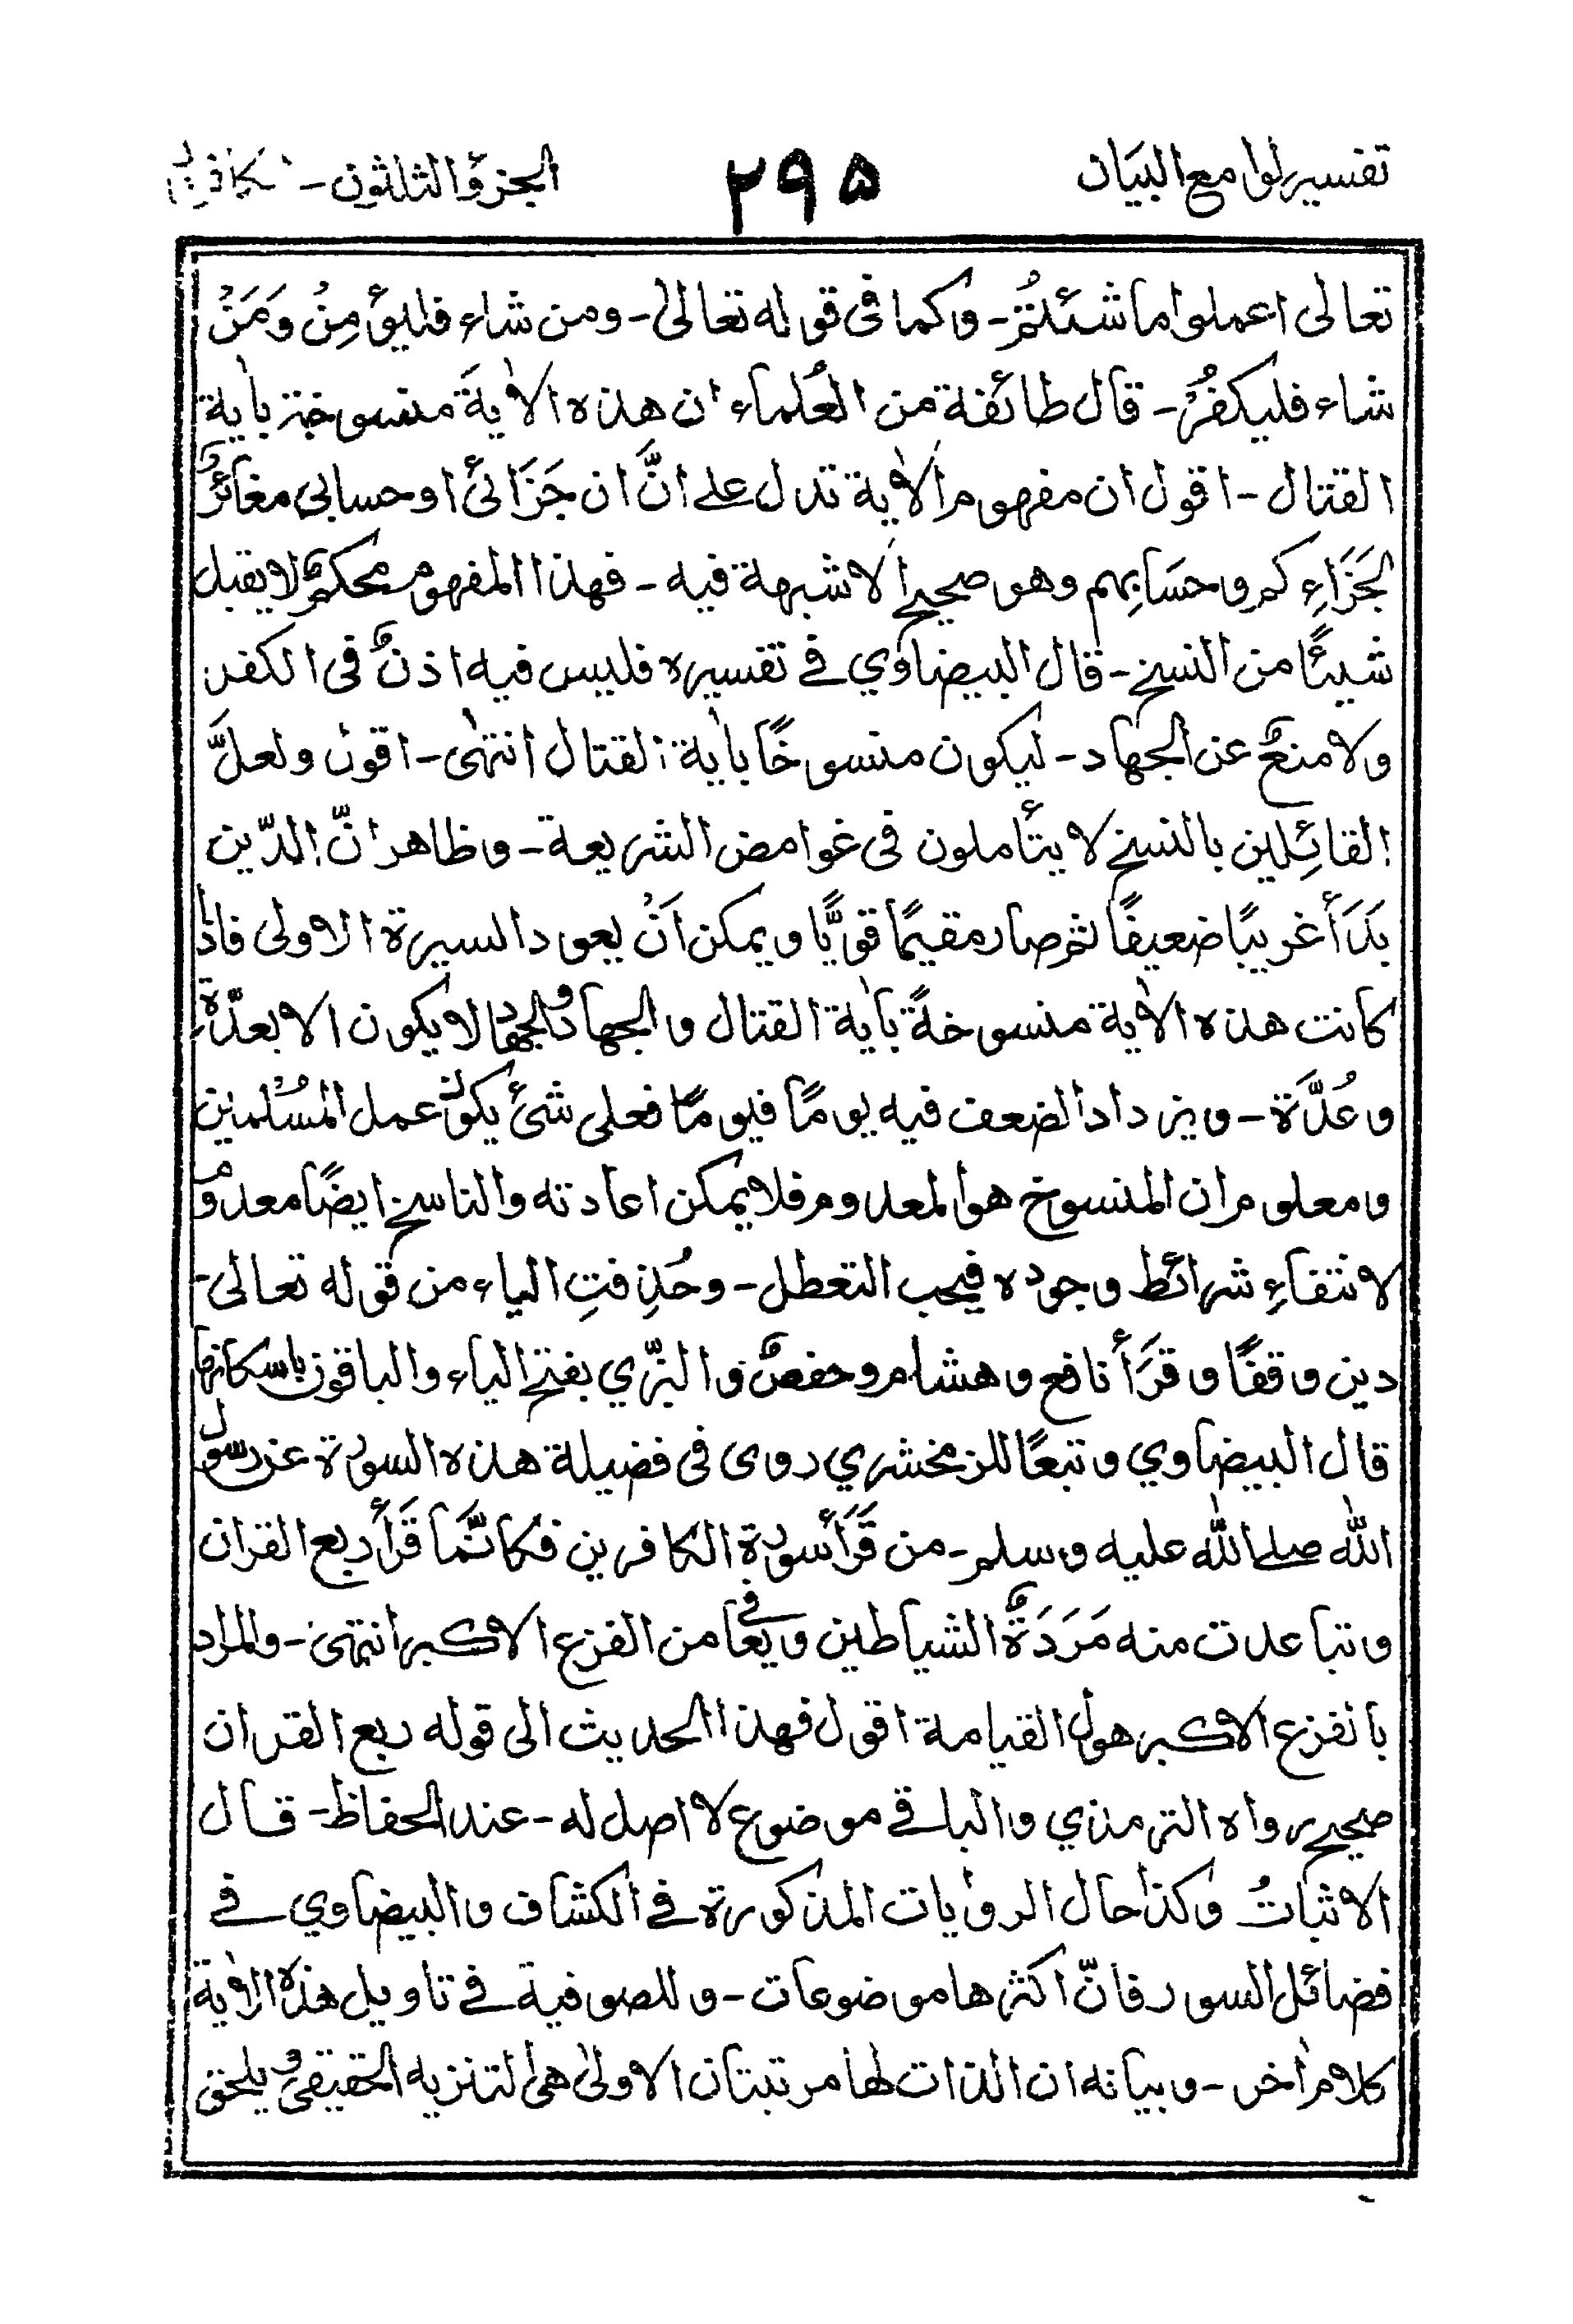 تفسير لوامع البيان ٢٩٥ الجزؤ الثلثون -
تعالى اعملوا ما شئتُم - وكما في قوله تعالى - ومن شاء فليؤمِنْ وَمَنْ
شاء فليكفُرْ - قال طائفة من العُلماء ان هذه الاٰيةَ منسوخة باٰية
القتال - اقول ان مفهوم الاٰية تدل على انَّ ان جَزَائي او حسابي مغائرٌ
لجَزَاءِكم وحسَابِهم وهو صحيح لا شبهة فيه - فهذا المفهوم محكمٌ لا يقبل
شيئًا من النسخ - قال البيضاوي في تفسيره فليس فيه اذنٌ في الكفر
ولا منعٌ عن الجهاد - ليكون منسوخًا باٰية القتال انتهى - اقول ولعلَّ
القائِلين بالنسخ لا يتأملون في غوامض الشريعة - وظاهر انّ الدّين
بَدَأَ غريبًا ضعيفًا ثم صار مقيمًا قويًّا ويمكن اَنْ يعود السيرة الاولى فاذا
كانت هذه الاٰية منسوخةً باٰية القتال والجهاد والجهاد لا يكون الا بعدّة
وعُدَّة - ويزداد الضعف فيه يومًا فيومًا فعلى شئ يكون عمل المُسْلمين
ومعلوم ان المنسوخ هو المعدوم فلا يمكن اعادته والناسخ ايضًا معدومٌ
لانتفاءِ شرائط وجوده فيجب التعطل - وحُذِفتِ الياء من قوله تعالى -
دين وقفًا وقَرَأَ نافع وهشام وحفصٌ والبزّي بفتح الياء والباقون باسكانها
قال البيضاوي وتبعًا للزمخشري روى في فضيلة هذه السورة عن رسول
الله صلے الله عليه وسلم - من قَرَأَ سورة الكافرين فكانَّما قَرَأَ ربع القران
وتباعدت منه مَرَدَةُ الشياطين ويعافى من الفزع الاكبر انتهى - والمراد
بالفزع الاكبر هول القيامة اقول فهذا الحديث الى قوله ربع القران
صحيح رواه الترمذي والباقي موضوع لا اصل له - عند الحفاظ - قال
الاثباتُ وكذا حال الروايات المذكورة في الكشاف والبيضاوي في
فضائل السور فانّ اكثرها موضوعات - وللصوفية في تاويل هذه الاٰية
كلام اٰخر - وبيانه ان الذات لها مرتبتان الاولىٰ هي التنزيه الحقيقي ويلحق